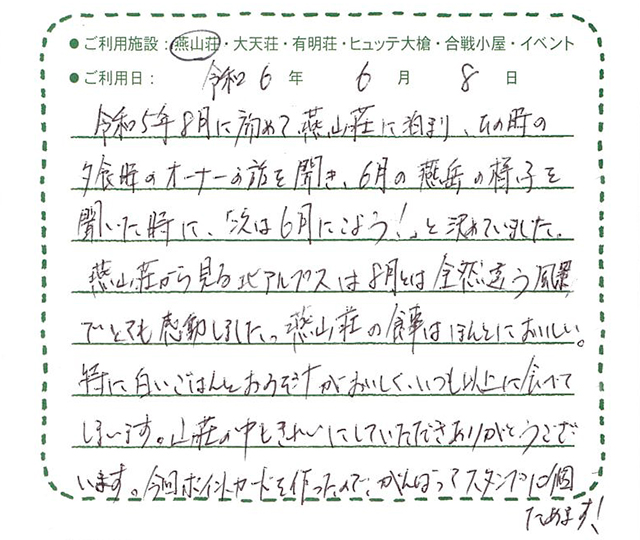 ●ご利用施設：燕山荘・大天荘・有明荘・ヒュッテ大槍・合戦小屋・イベント
●ご利用日： 令和6年 6月 8日
令和5年8月に初めて燕山荘に泊まり、その時の
夕食時のオーナーの話を聞き、6月の燕岳の様子を
聞いた時に、「次は6月にこよう!」と決めていました。
燕山荘から見る北アルプスは8月とは全然違う風景
でとても感動しました。燕山荘の食事はほんとにおいしい。
特に白いごはんとおみそ汁がおいしく、いつも以上に食べて
しまいます。山荘の中もきれいにしていただきありがとうござ
います。今回ポイントカードを作ったので、がんばってスタンプ10個
ためます!